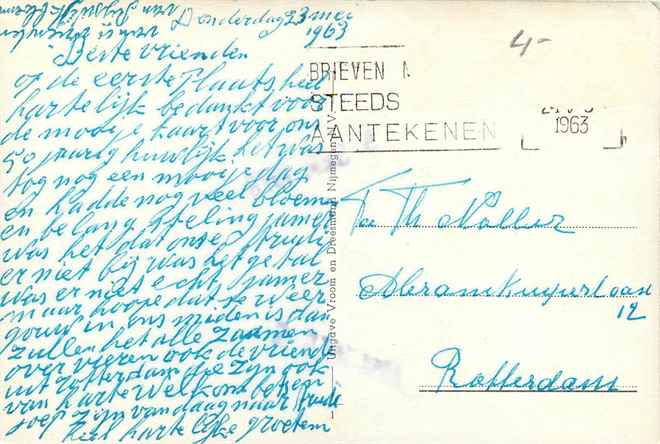 Donderdag 23 mei
1963
Beste vrienden
op de eerste plaats heel
hartelijk bedankt voor
de mooije kaart voor ons
50 jaarig huwlijk het was
tog nog een mooije dag
en hadde nog veel bloeme
en belang stteling jamer
was het dat onse Trudi
er niet bij was het getal
was er niet echt jamer
maar hoope dat ze weer
gouw in ons miden is dan
zullen het alle zaamen
over vieren ook de vriende
uit Rotterdam die zijn ook
van harte welkom
joep zijn vandaag naar Trudi
heel hartelijke groetem
4-
BRIEVEN
STEEDS
AANTEKENEN
1963
Uitgave Vroom en Dreesmann, Nijmegen N.V.
Fa Th Nöller
Abram Kuyperlaan
12
Rotterdam